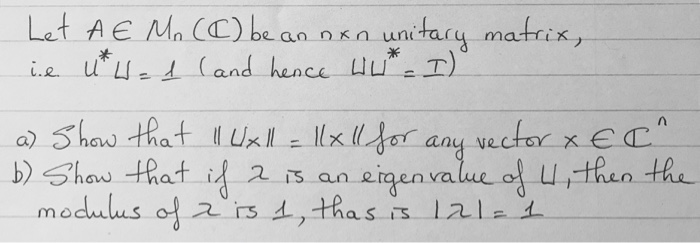 Let A ∈ Mn (ℂ) be an n×n unitary matrix,
i.e U*U = 1 (and hence UU* = I)
a) Show that ||Ux|| = ||x|| for any vector x ∈ ℂⁿ
b) Show that if λ is an eigenvalue of U, then the
modulus of λ is 1, thas is |λ| = 1